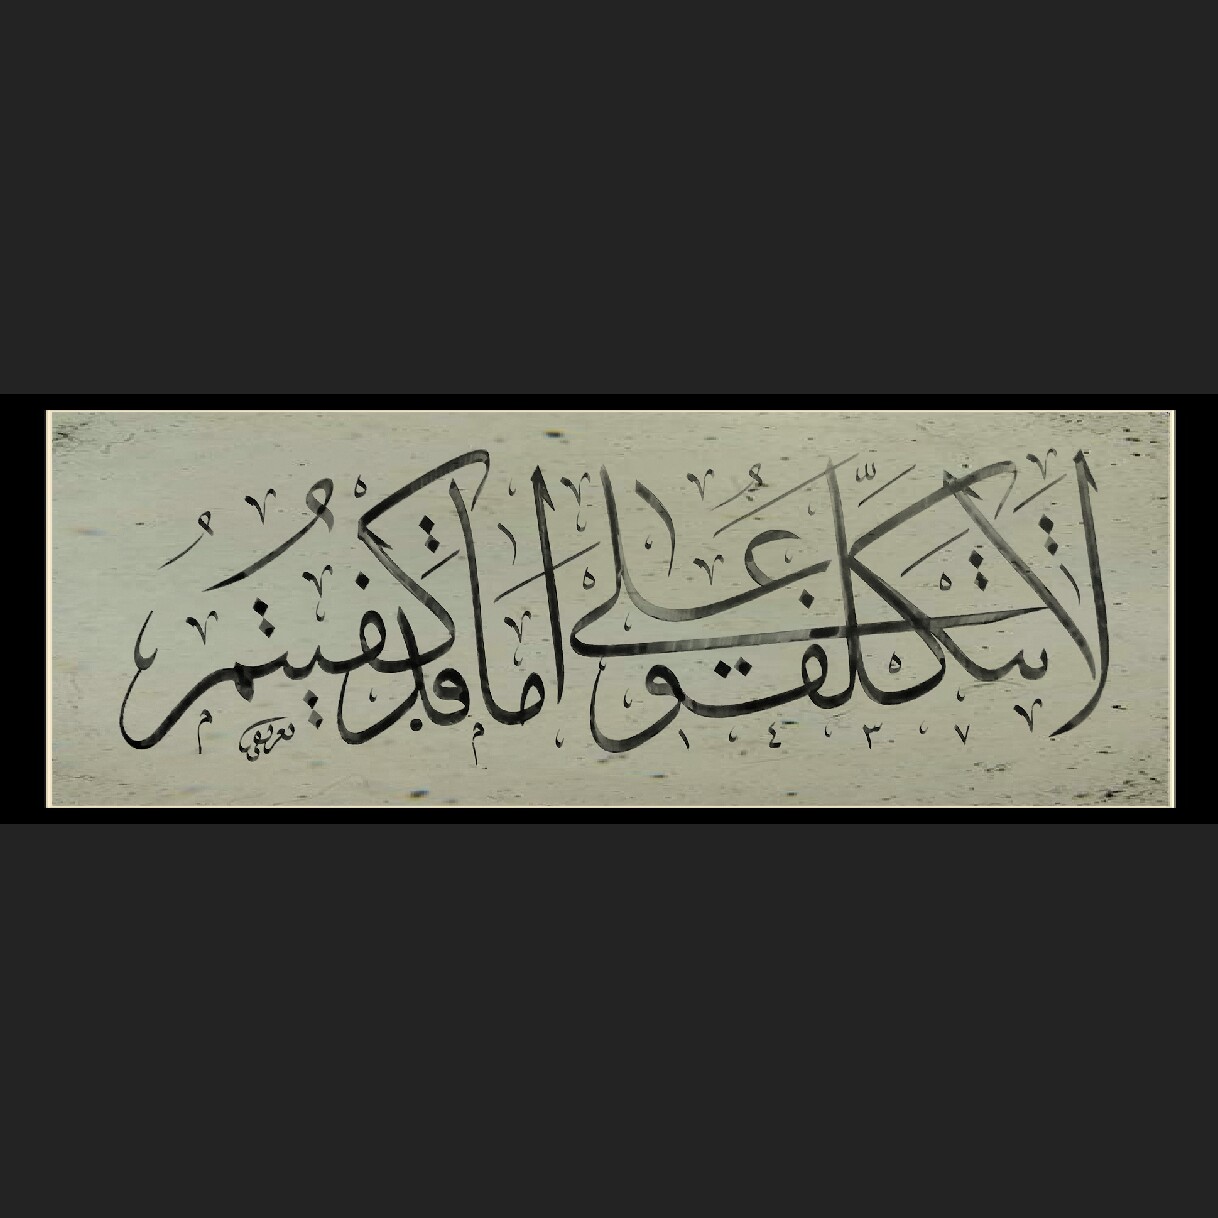 لا تتكلفوا على ما قد كفيتم
١٤٣٧